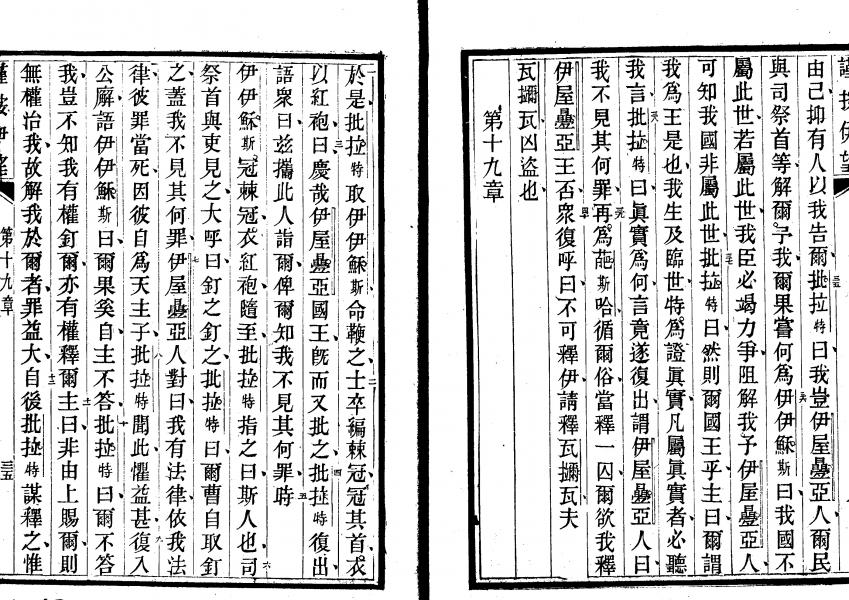 由己抑有人以我告爾批拉特曰我豈伊屋疉亞人爾民
與司祭首等解爾予我爾果嘗何爲伊伊穌斯曰我國不
屬此世若屬此世我臣必竭力爭阻解我予伊屋疉亞人
可知我國非屬此世批拉特曰然則爾國王乎主曰爾謂
我爲王是也我生及臨世特爲證眞實凡屬眞實者必聽
我言批拉特曰眞實爲何言竟遂復出謂伊屋疉亞人曰
我不見其何罪再爲葩斯哈循爾俗當釋一囚爾欲我釋
伊屋疉亞王否衆復呼曰不可釋伊請釋瓦彌瓦夫
瓦彌瓦凶盜也
第十九章
於是批拉特取伊伊穌斯命鞭之士卒編棘冠冠其首衣
以紅袍曰慶哉伊屋疉亞國王旣而又批之批拉特復出
語衆曰玆攜此人詣爾俾爾知我不見其何罪時
伊伊穌斯冠棘冠衣紅袍隨至批拉特指之曰斯人也司
祭首與吏見之大呼曰釘之釘之批拉特曰爾曹自取釘
之蓋我不見其何罪伊屋疉亞人對曰我有法律依我法
律彼罪當死因彼自爲天主子批拉特聞此懼益甚復入
公廨語伊伊穌斯曰爾果奚自主不答批拉特曰爾不答
我豈不知我有權釘爾亦有權釋爾主曰非由上賜爾則
無權治我故解我於爾者罪益大自後批拉特謀釋之惟
第十九章